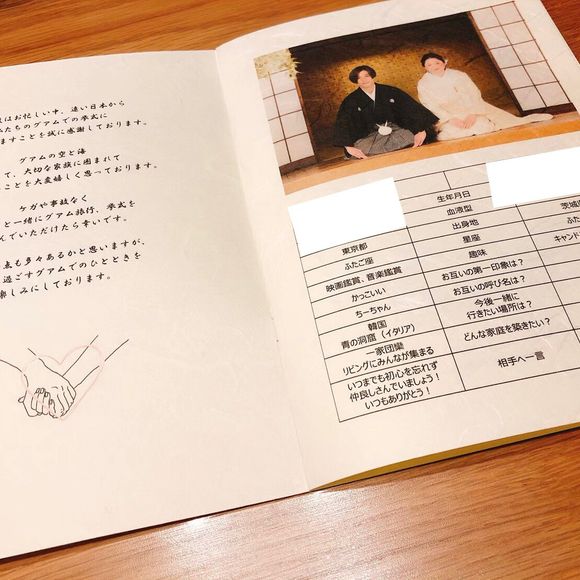 はお忙しい中、遠い日本から
たちのグアムでの挙式に
ますことを誠に感謝しております。
グアムの空と海
て、大切な家族に囲まれて
ことを大変嬉しく思っております。
ケガや事故なく
と一緒にグアム旅行、挙式を
んでいただけたら幸いです。
点も多々あるかと思いますが、
過ごすグアムでのひとときを
楽しみにしております。
生年月日
血液型
東京都 出身地 茨城
ふたご座 星座 ふた
映画鑑賞、音楽鑑賞 趣味 キャンド
かっこいい お互いの第一印象は？
ちーちゃん お互いの呼び名は？
韓国
青の洞窟（イタリア） 今後一緒に
行きたい場所は？
一家団欒
リビングにみんなが集まる どんな家庭を築きたい？
いつまでも初心を忘れず
仲良しさんでいましょう！
いつもありがとう！ 相手へ一言